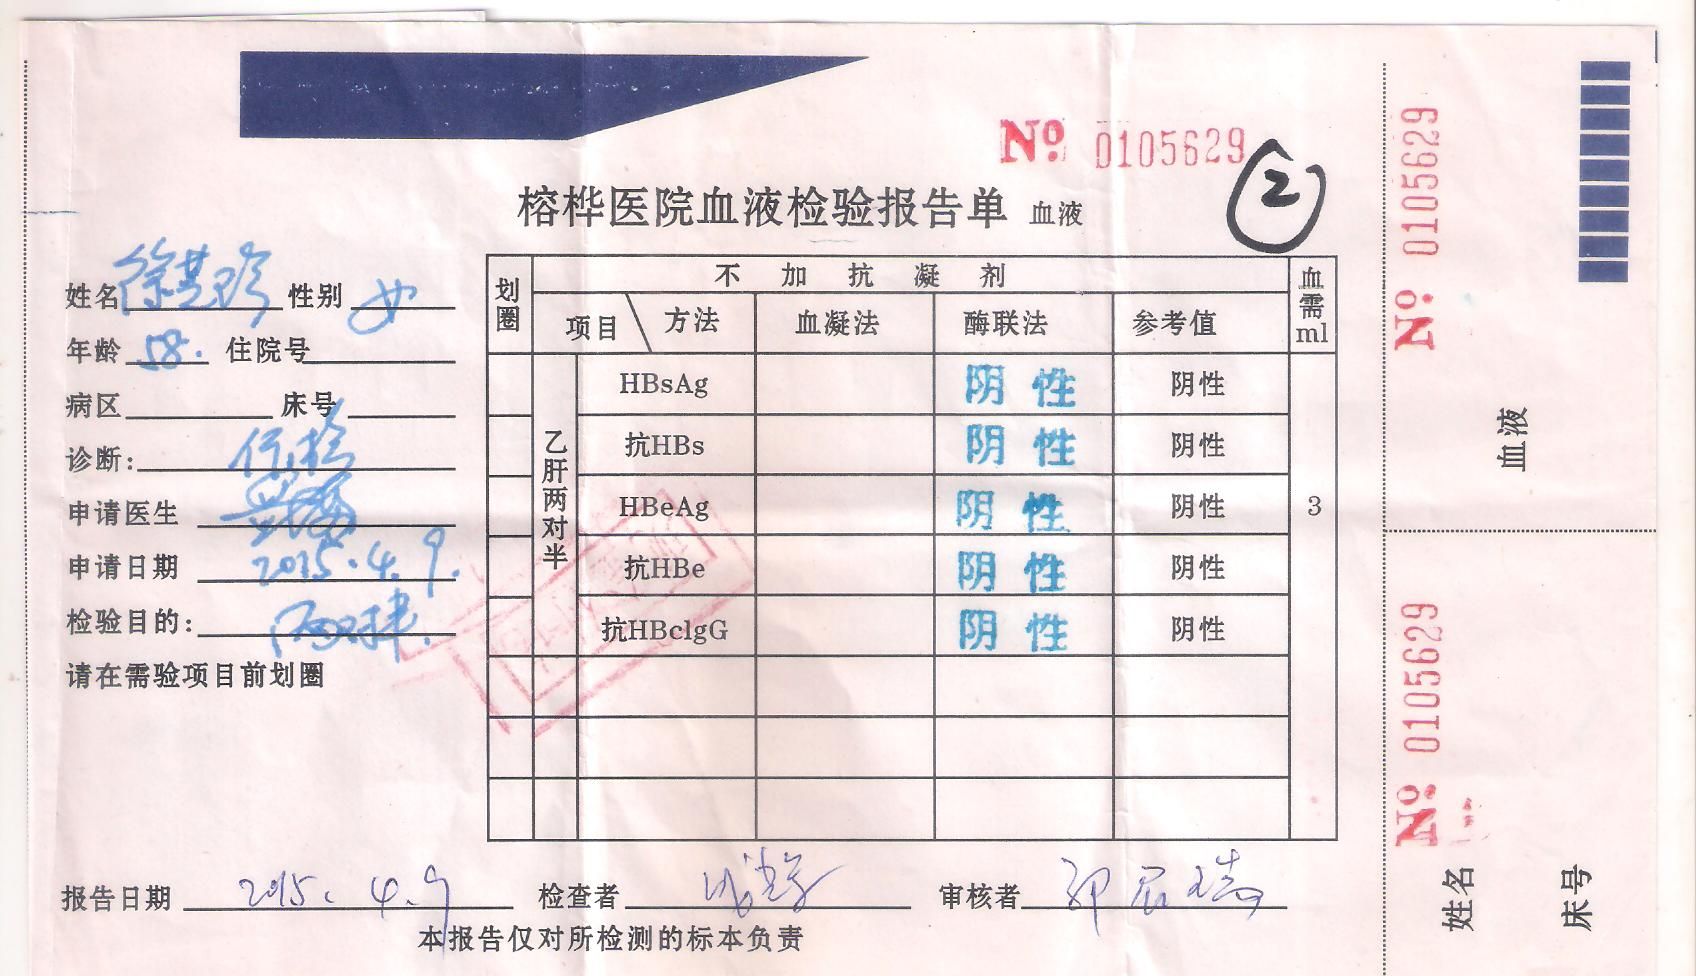 No. 0105629
②
榕桦医院血液检验报告单 血液
姓名 徐慧珍 性别 女
年龄 58. 住院号
病区 床号
诊断:
申请医生
申请日期 2015.4.9.
检验目的: 两对半.
请在需验项目前划圈
划圈 不加抗凝剂 血需ml
项目 方法 血凝法 酶联法 参考值
乙肝两对半
HBsAg 阴性 阴性
抗HBs 阴性 阴性
HBeAg 阴性 阴性 3
抗HBe 阴性 阴性
抗HBcIgG 阴性 阴性
报告日期 2015.4.9 检查者 审核者
本报告仅对所检测的标本负责
No. 0105629
血液
No. 0105629
姓名
床号